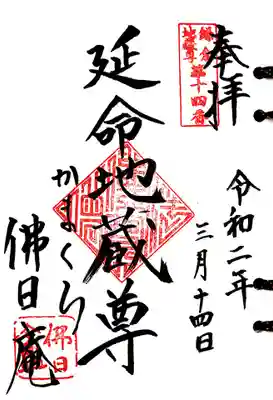 奉拝
鎌倉
地蔵尊
第十四番
令和二年
三月十四日
延命地蔵尊
かまくら
佛日庵
佛日